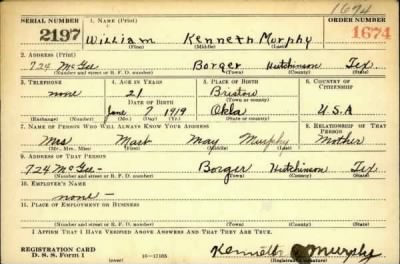 1674
SERIAL NUMBER 1. NAME (Print) ORDER NUMBER
2197 William Kenneth Murphy 1674
(First) (Middle) (Last)
2. ADDRESS (Print)
724 McGee Borger Hutchinson Tex.
(Number and street or R. F. D. number) (Town) (County) (State)
3. TELEPHONE 4. AGE IN YEARS 5. PLACE OF BIRTH 6. COUNTRY OF CITIZENSHIP
none 21 Bristow
DATE OF BIRTH (Town or county)
June 7 1919 Okla U.S.A
(Exchange) (Number) (Mo.) (Day) (Yr.) (State or country)
7. NAME OF PERSON WHO WILL ALWAYS KNOW YOUR ADDRESS 8. RELATIONSHIP OF THAT PERSON
Mrs May Murphy Mother
(Mr., Mrs., Miss) (First) (Middle) (Last)
9. ADDRESS OF THAT PERSON
724 McGee- Borger Hutchinson Tex
(Number and street or R. F. D. number) (Town) (County) (State)
10. EMPLOYER'S NAME
none-
11. PLACE OF EMPLOYMENT OR BUSINESS
(Number and street or R. F. D. number) (Town) (County) (State)
I AFFIRM THAT I HAVE VERIFIED ABOVE ANSWERS AND THAT THEY ARE TRUE.
REGISTRATION CARD
D. S. S. Form 1 16-17105 Kenneth Murphy
(Registrant's signature)